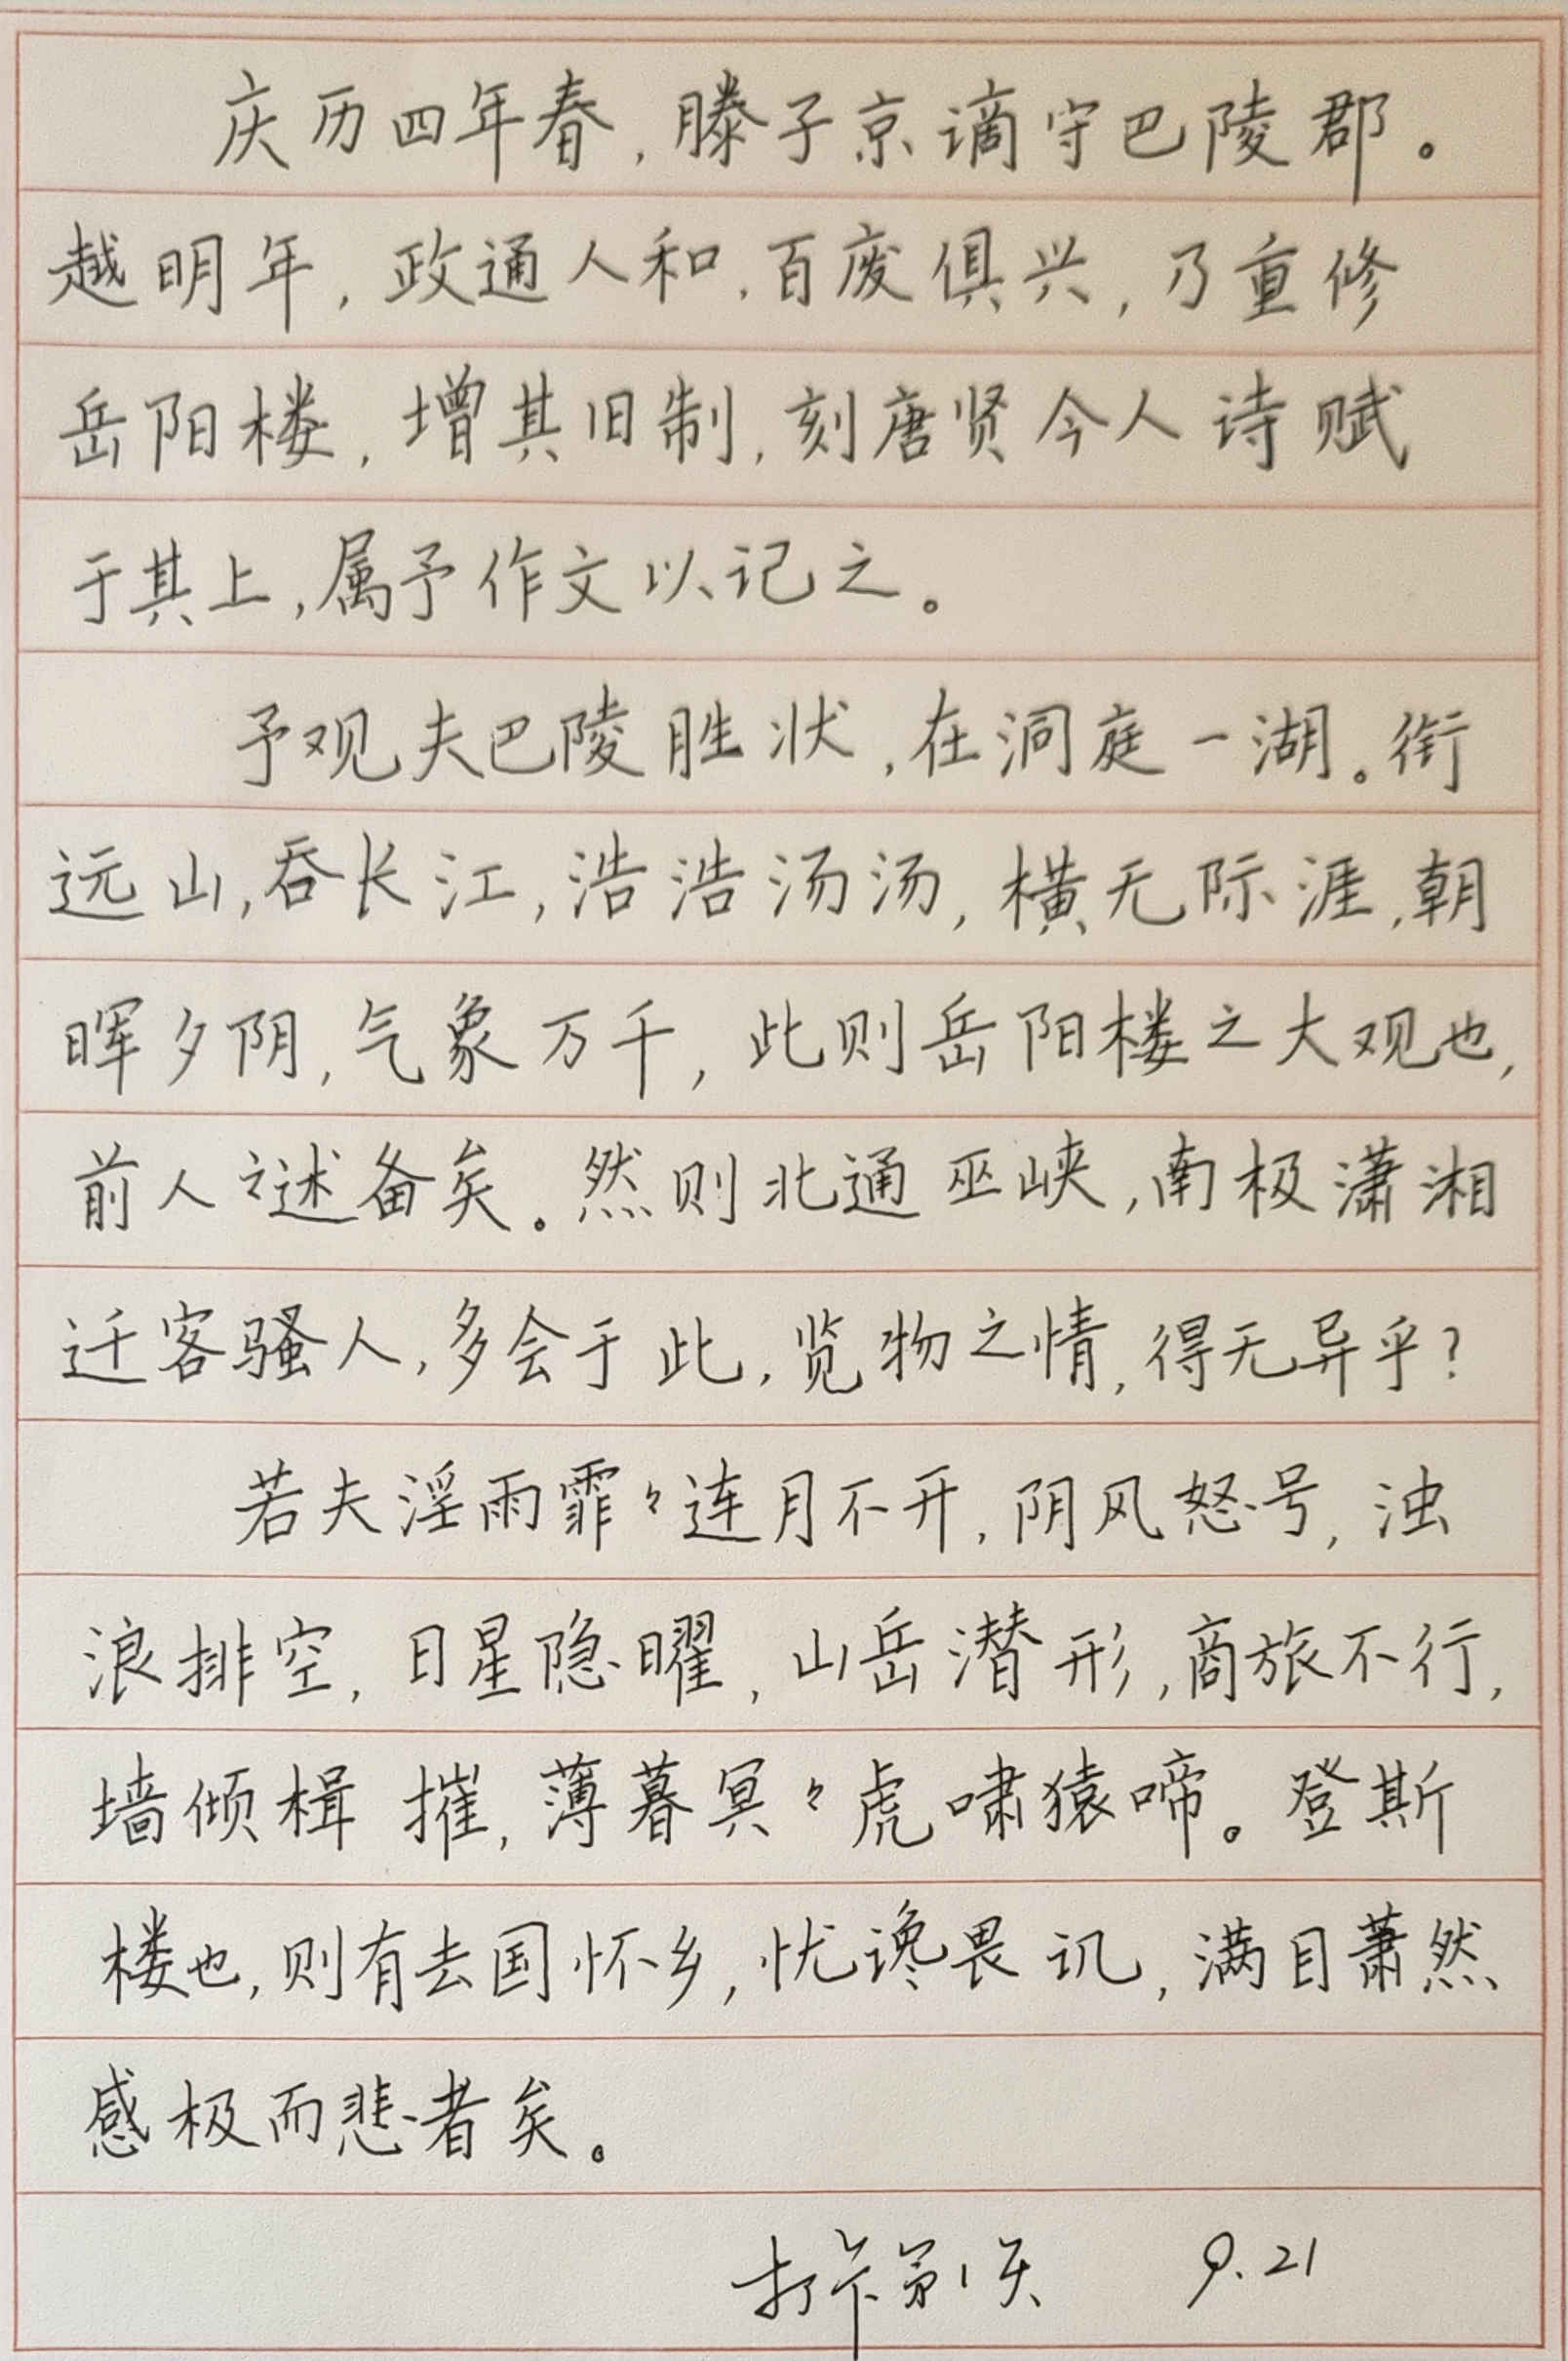 庆历四年春,滕子京谪守巴陵郡。
越明年,政通人和,百废俱兴,乃重修
岳阳楼,增其旧制,刻唐贤今人诗赋
于其上,属予作文以记之。
予观夫巴陵胜状,在洞庭一湖。衔
远山,吞长江,浩浩汤汤,横无际涯,朝
晖夕阴,气象万千,此则岳阳楼之大观也,
前人之述备矣。然则北通巫峡,南极潇湘
迁客骚人,多会于此,览物之情,得无异乎?
若夫淫雨霏々连月不开,阴风怒号,浊
浪排空,日星隐曜,山岳潜形,商旅不行,
墙倾楫摧,薄暮冥々虎啸猿啼。登斯
楼也,则有去国怀乡,忧谗畏讥,满目萧然
感极而悲者矣。
打卡第1天 9.21